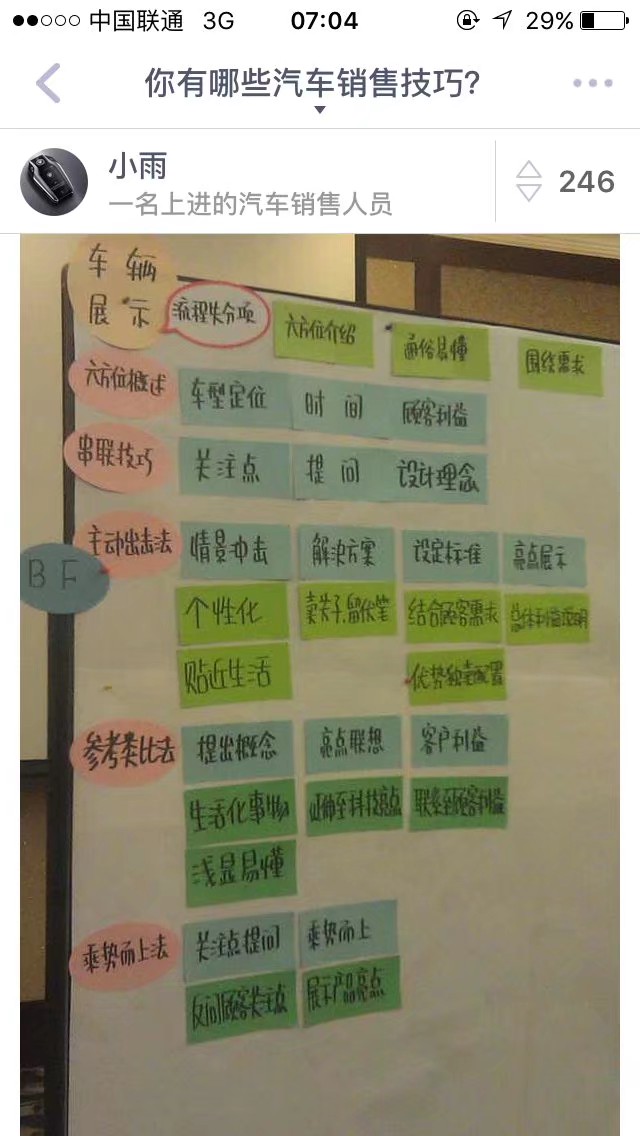 中国联通 3G 07:04 29%
你有哪些汽车销售技巧?
小雨
一名上进的汽车销售人员
246
车辆
展示
流程失分项
六方位介绍
通俗易懂
围绕需求
六方位概述
车型定位
时间
顾客利益
串联技巧
关注点
提问
设计理念
主动出击法
情景冲击
解决方案
设定标准
亮点展示
BF
个性化
卖关子,留伏笔
结合顾客需求
总体利益说明
贴近生活
优势独有配置
参考类比法
提出概念
亮点联想
客户利益
生活化事物
延伸至科技亮点
联系至顾客利益
浅显易懂
乘势而上法
关注点提问
乘势而上
反问顾客关注点
展示产品亮点